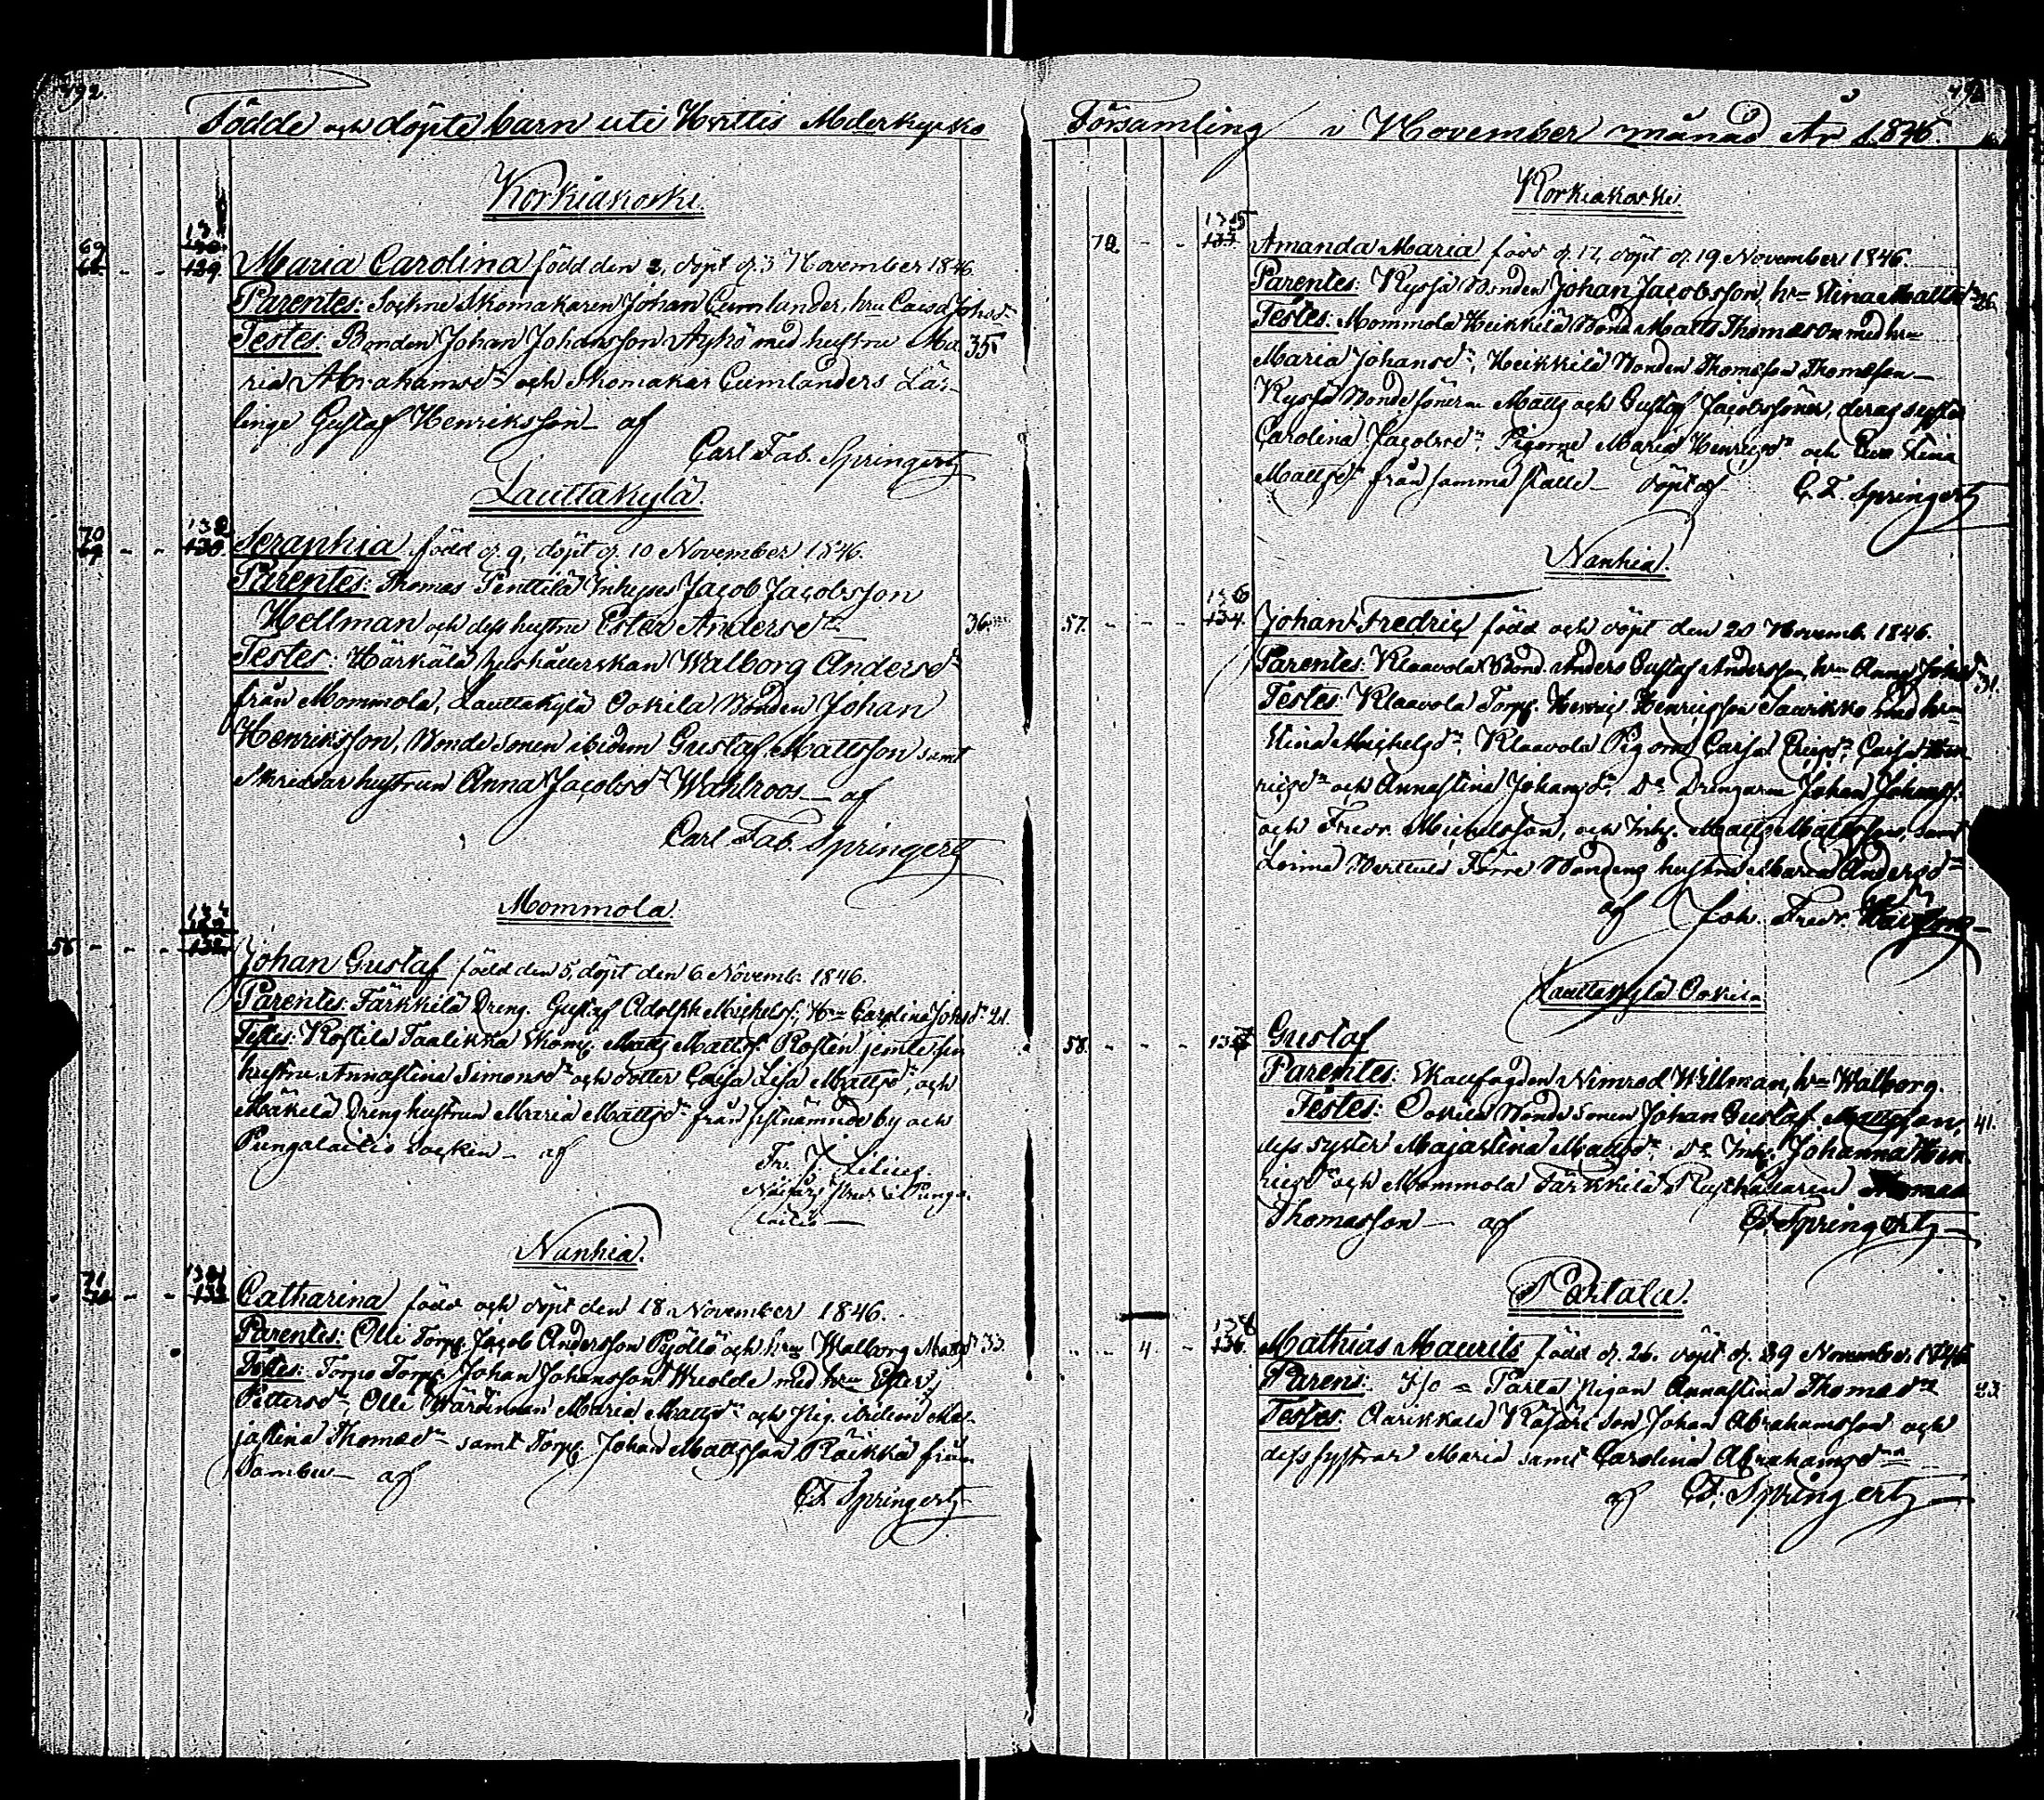 492.
Födde och döpte barn uti Hvittis Moderkyrko
Korkiakoski.
131
69
68 - - 129
Maria Carolina född den 2, döpt d. 3 November 1846.
Parentes: Sockne Skomakaren Johan Cumlander, hru Caisa Johsdr
Testes: Bonden Johan Johansson Äyhö med hustru Ma- 35
ria Abrahamsdr och Skomakar Cumlanders Lär-
linge Gustaf Henriksson - af
Carl Fab. Springert
Lauttakylä.
132
70
69 - - 130
Seraphia född d. 9, döpt d. 10 November 1846.
Parentes: Thomas Penttilä Inhyses Jacob Jacobsson
Hellman och dess hustru Ester Andersdr 36
Testes: Härkälä Hushållerskan Walborg Andersdr
från Mommola, Lauttakylä Ockila Bonden Johan
Henriksson, Bonde Sonen ibidem Gustaf Mattsson samt
Skreddar hustrun Anna Jacobsdr Wahlroos - af
Carl Fab. Springert
Mommola.
56 - - -
Johan Gustaf född den 5, döpt den 6 Novemb. 1846.
Parentes: Färkkilä Dreng. Gustaf Adolph Michelss. Hru Carolina Johsdr 21.
Testes: Kostila Matts Mattss. Rostén jemte sin
hustru Annastina Simonsdr och dotter Caisa Lisa Mattsdr, och
Mäkelä Dreng hustrun Maria Mattsdr från sistnämnde by och
Pungalaitis Socken - af
Fr. J. Lilius.
i Punga-
laitis
Nanhia.
71
70 - -
Catharina född och döpt den 18 November 1846.
Parentes: Olli Torp. Jacob Andersson Pyölli och hru Walborg Mattsdr 33.
Testes: Torp. Johan Johansson med hru Ester
Pettersdr, Olli Wärdinnan Maria Mattsdr och Pig. ibidem Ma-
jastina Thomasdr samt Torp. Johan Mattsson Räikkä från
Sambu - af
C F Springert
Församling i November månad År 1846.
Korkiakoski.
135
72 - -
Amanda Maria född d. 17, döpt d. 19 November 1846.
Parentes: Kyssä Bonden Johan Jacobsson, hru Stina Mattsdr 26.
Testes: Mommola Heikkilä Bond. Matts Thomasson med hru
Maria Johansdr, Heikkilä Bonden Thomas Thomasson -
Kyssä Bondesönerne Matts och Gustaf Jacobssöner, deras syster
Carolina Jacobsdr, Pigorne Maria Henricsdr och Eva Stina
Mattsdr från samma ställe - döpt af C. F. Springert
Nanhia.
136
57. - - - 134.
Johan Fredric född och döpt den 20 Novemb. 1846.
Parentes: Klaavola Bond. Anders Gustaf Andersson, hru Anna Johsdr 31.
Testes: Klaavola Torp. Henric Henricsson Saurikko med hru
Stina Michelsdr, Klaavola Pigorne Caisa Ericsdr, Caisa Hen-
ricsdr och Annastina Johansdr, Do Drengarne Johan Johanss.
och Fredr. Michelsson, och Inh. Matts Mattsson, samt
Loima Förre Bondens hustru Maria Andersdr
af Joh. Fredr.
Lauttakylä Ockila
58. - - - 137
Gustaf
Parentes: Skallfogden Nimrod Willman, hru Walborg.
Testes: Ockila Bonde Sonen Johan Gustaf Mattsson, 41.
dess syster Majastina Mattsdr, Do Inh. Johanna Hen-
ricsdr och Mommola Färkkilä Rusthållaren Thomas
Thomasson - af C F Springert
Partala.
138
- - 4. - 136.
Mathias Maurits född d. 26. döpt d. 29 November 1846
Parens: Pigan Annastina Thomasdr 23.
Testes: Aarikkala Son Johan Abrahamsson och
dess systrar Maria samt Carolina Abrahamsdr
af C F. Springert